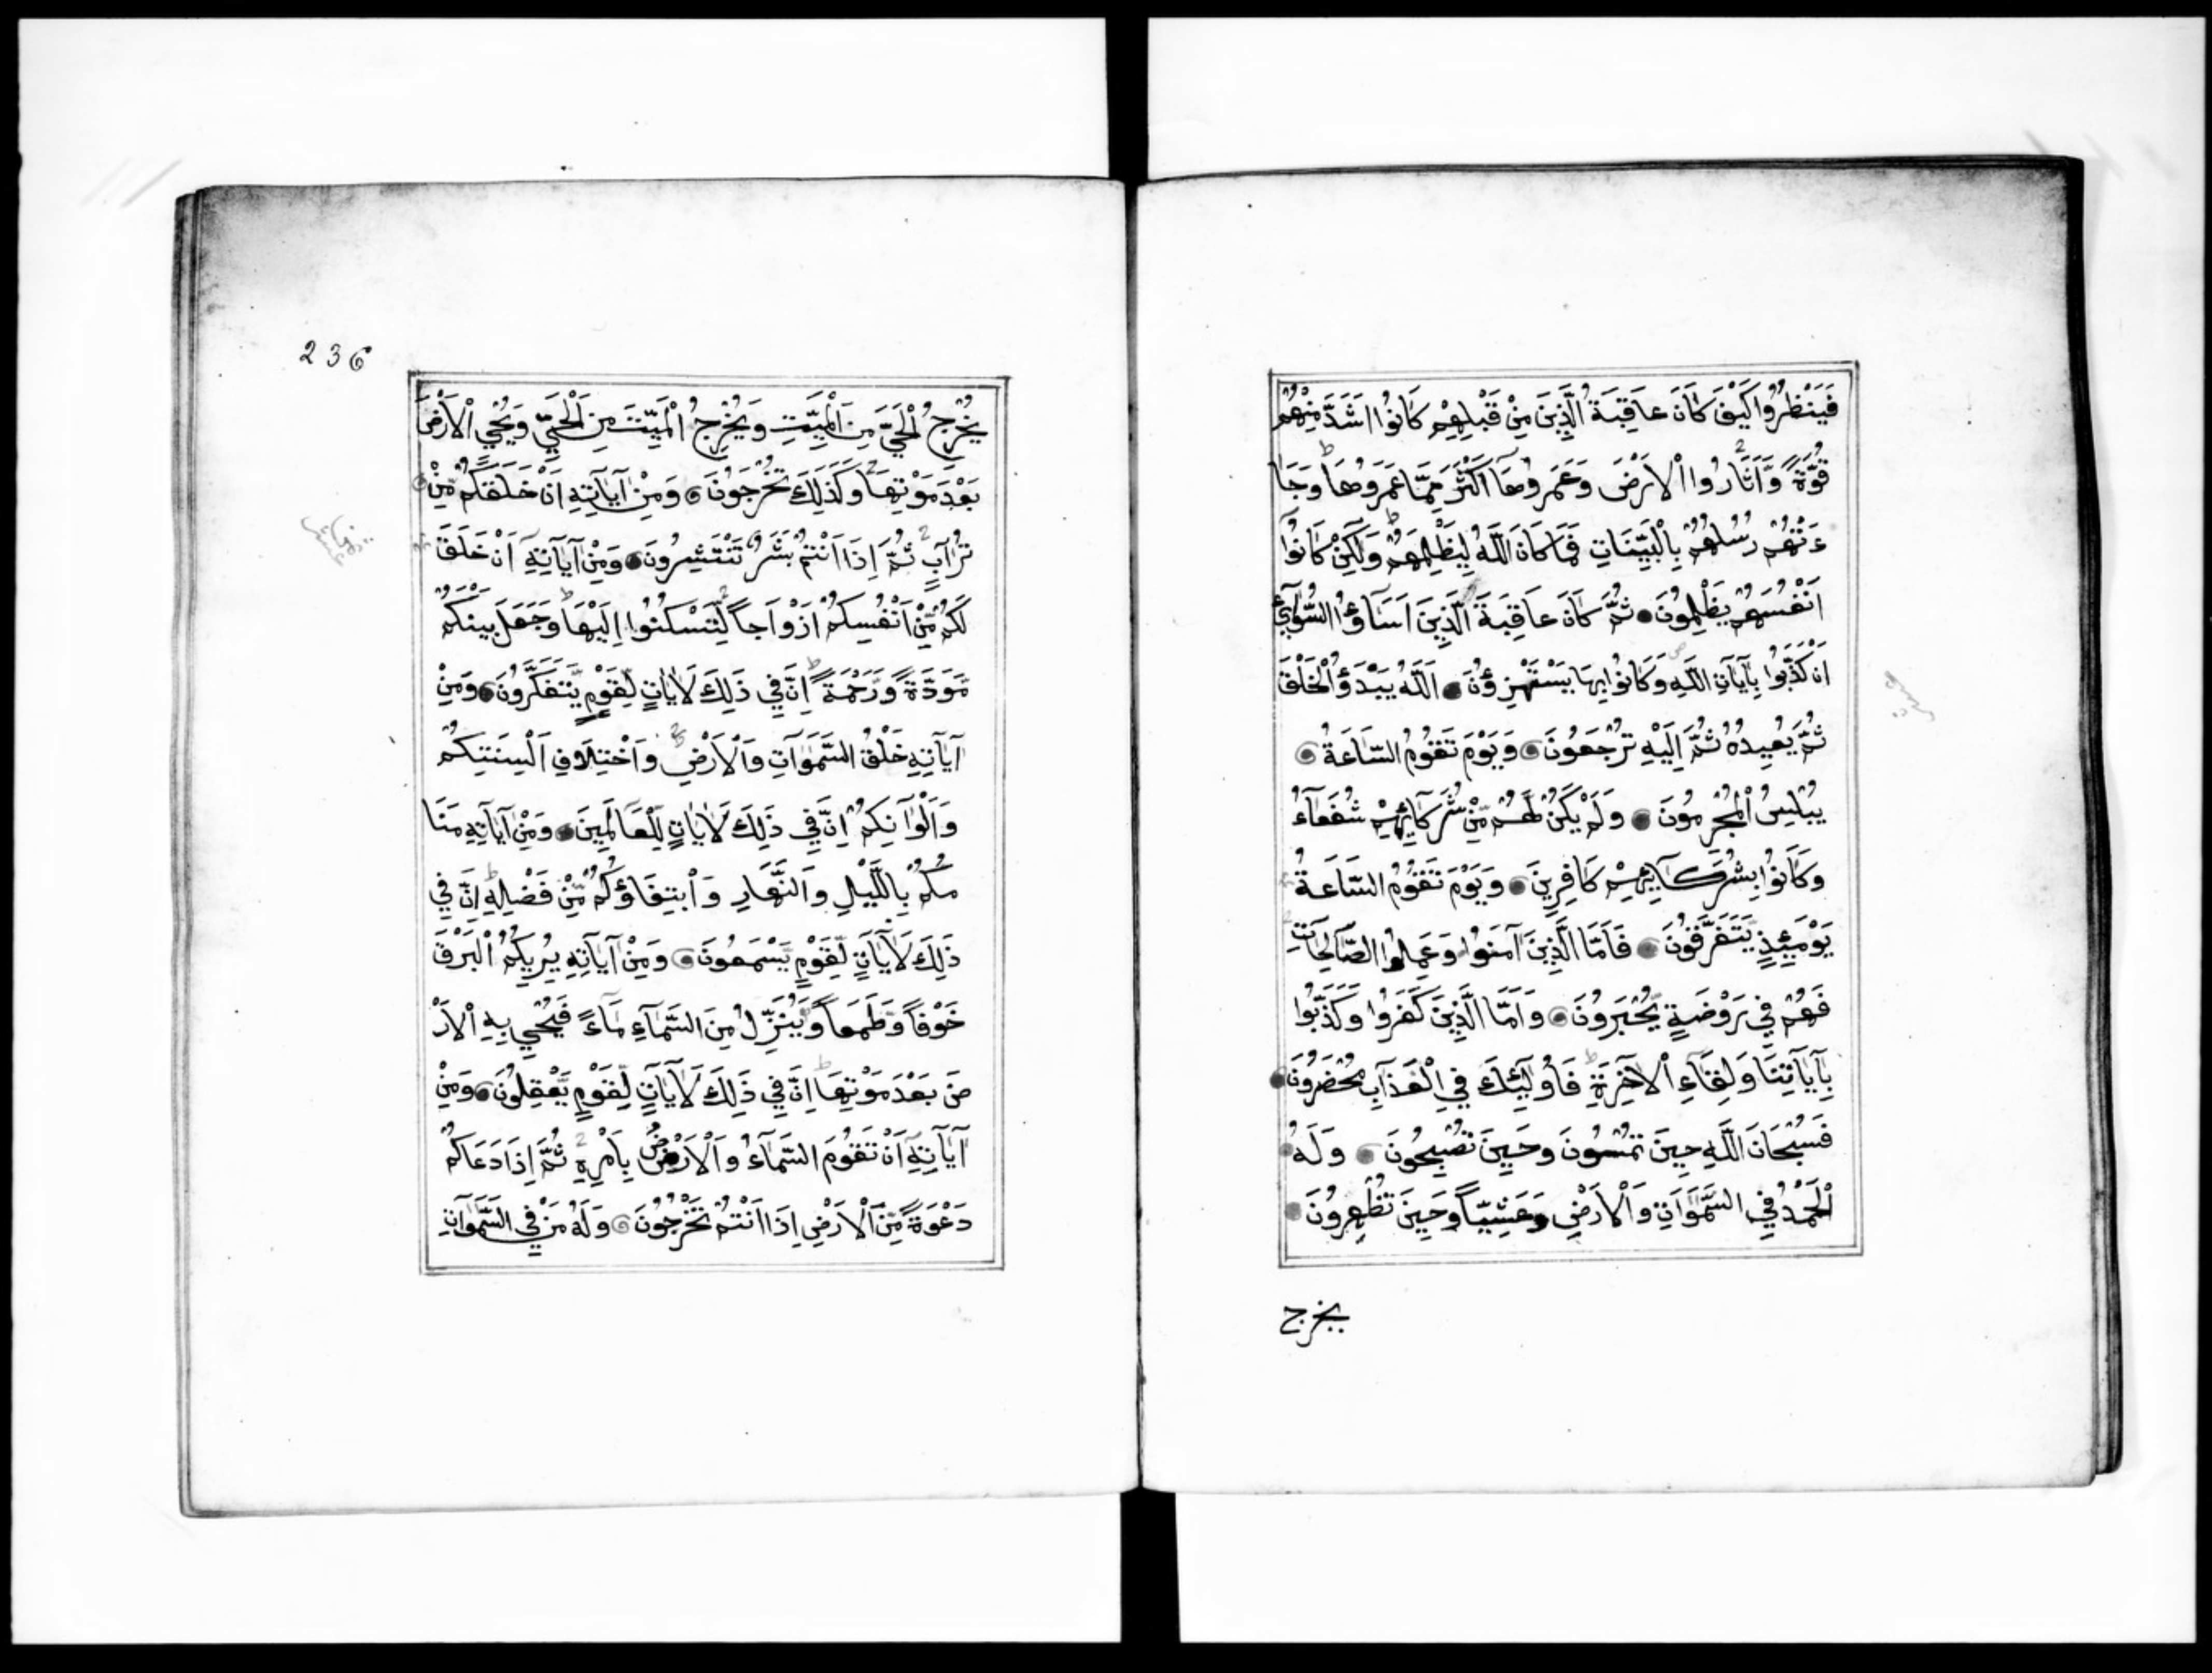 فَيَنْظُرُوا كَيْفَ كَانَ عَاقِبَةُ الَّذِينَ مِنْ قَبْلِهِمْ كَانُوا اَشَدَّ مِنْهُمْ
قُوَّةً وَّاَثَارُوا الْاَرْضَ وَعَمَرُوهَا اَكْثَرَ مِمَّا عَمَرُوهَا وَجَا
ءَتْهُمْ رُسُلُهُمْ بِالْبَيِّنَاتِ فَمَا كَانَ اللَّهُ لِيَظْلِمَهُمْ وَلَكِنْ كَانُوا
اَنْفُسَهُمْ يَظْلِمُونَ ثُمَّ كَانَ عَاقِبَةَ الَّذِينَ اَسَآؤُا السُّوٓآى
اَنْ كَذَّبُوا بِآيَاتِ اللَّهِ وَكَانُوا بِهَا يَسْتَهْزِؤُنَ اَللَّهُ يَبْدَؤُ الْخَلْقَ
ثُمَّ يُعِيدُهُ ثُمَّ اِلَيْهِ تُرْجَعُونَ وَيَوْمَ تَقُومُ السَّاعَةُ
يُبْلِسُ الْمُجْرِمُونَ وَلَمْ يَكُنْ لَهُمْ مِّنْ شُرَكَآئِهِمْ شُفَعَآءُ
وَكَانُوا بِشُرَكَآئِهِمْ كَافِرِينَ وَيَوْمَ تَقُومُ السَّاعَةُ
يَوْمَئِذٍ يَتَفَرَّقُونَ فَاَمَّا الَّذِينَ آمَنُوا وَعَمِلُوا الصَّالِحَاتِ
فَهُمْ فِي رَوْضَةٍ يُّحْبَرُونَ وَاَمَّا الَّذِينَ كَفَرُوا وَكَذَّبُوا
بِآيَاتِنَا وَلِقَآءِ الْآخِرَةِ فَاُولَئِكَ فِي الْعَذَابِ مُحْضَرُونَ
فَسُبْحَانَ اللَّهِ حِينَ تُمْسُونَ وَحِينَ تُصْبِحُونَ وَلَهُ
الْحَمْدُ فِي السَّمَوَاتِ وَالْاَرْضِ وَعَشِيًّا وَحِينَ تُظْهِرُونَ
يخرج
236
يُخْرِجُ الْحَيَّ مِنَ الْمَيِّتِ وَيُخْرِجُ الْمَيِّتَ مِنَ الْحَيِّ وَيُحْيِي الْاَرْضَ
بَعْدَ مَوْتِهَا وَكَذَلِكَ تُخْرَجُونَ وَمِنْ آيَاتِهِ اَنْ خَلَقَكُمْ مِّنْ
تُرَابٍ ثُمَّ اِذَا اَنْتُمْ بَشَرٌ تَنْتَشِرُونَ وَمِنْ آيَاتِهِ اَنْ خَلَقَ
لَكُمْ مِّنْ اَنْفُسِكُمْ اَزْوَاجاً لِّتَسْكُنُوا اِلَيْهَا وَجَعَلَ بَيْنَكُمْ
مَّوَدَّةً وَّرَحْمَةً اِنَّ فِي ذَلِكَ لَاٰيَاتٍ لِّقَوْمٍ يَّتَفَكَّرُونَ وَمِنْ
آيَاتِهِ خَلْقُ السَّمَوَاتِ وَالْاَرْضِ وَاخْتِلَافِ اَلْسِنَتِكُمْ
وَاَلْوَانِكُمْ اِنَّ فِي ذَلِكَ لَاٰيَاتٍ لِّلْعَالَمِينَ وَمِنْ آيَاتِهِ مَنَا
مُكُمْ بِاللَّيْلِ وَالنَّهَارِ وَابْتِغَاؤُكُمْ مِّنْ فَضْلِهِ اِنَّ فِي
ذَلِكَ لَآيَاتٍ لِّقَوْمٍ يَّسْمَعُونَ وَمِنْ آيَاتِهِ يُرِيكُمُ الْبَرْقَ
خَوْفاً وَّطَمَعاً وَّيُنَزِّلُ مِنَ السَّمَآءِ مَآءً فَيُحْيِي بِهِ الْاَرْ
ضَ بَعْدَ مَوْتِهَا اِنَّ فِي ذَلِكَ لَآيَاتٍ لِّقَوْمٍ يَّعْقِلُونَ وَمِنْ
آيَاتِهِ اَنْ تَقُومَ السَّمَآءُ وَالْاَرْضُ بِاَمْرِهِ ثُمَّ اِذَا دَعَاكُمْ
دَعْوَةً مِّنَ الْاَرْضِ اِذَا اَنْتُمْ تَخْرُجُونَ وَلَهُ مَنْ فِي السَّمَوَاتِ